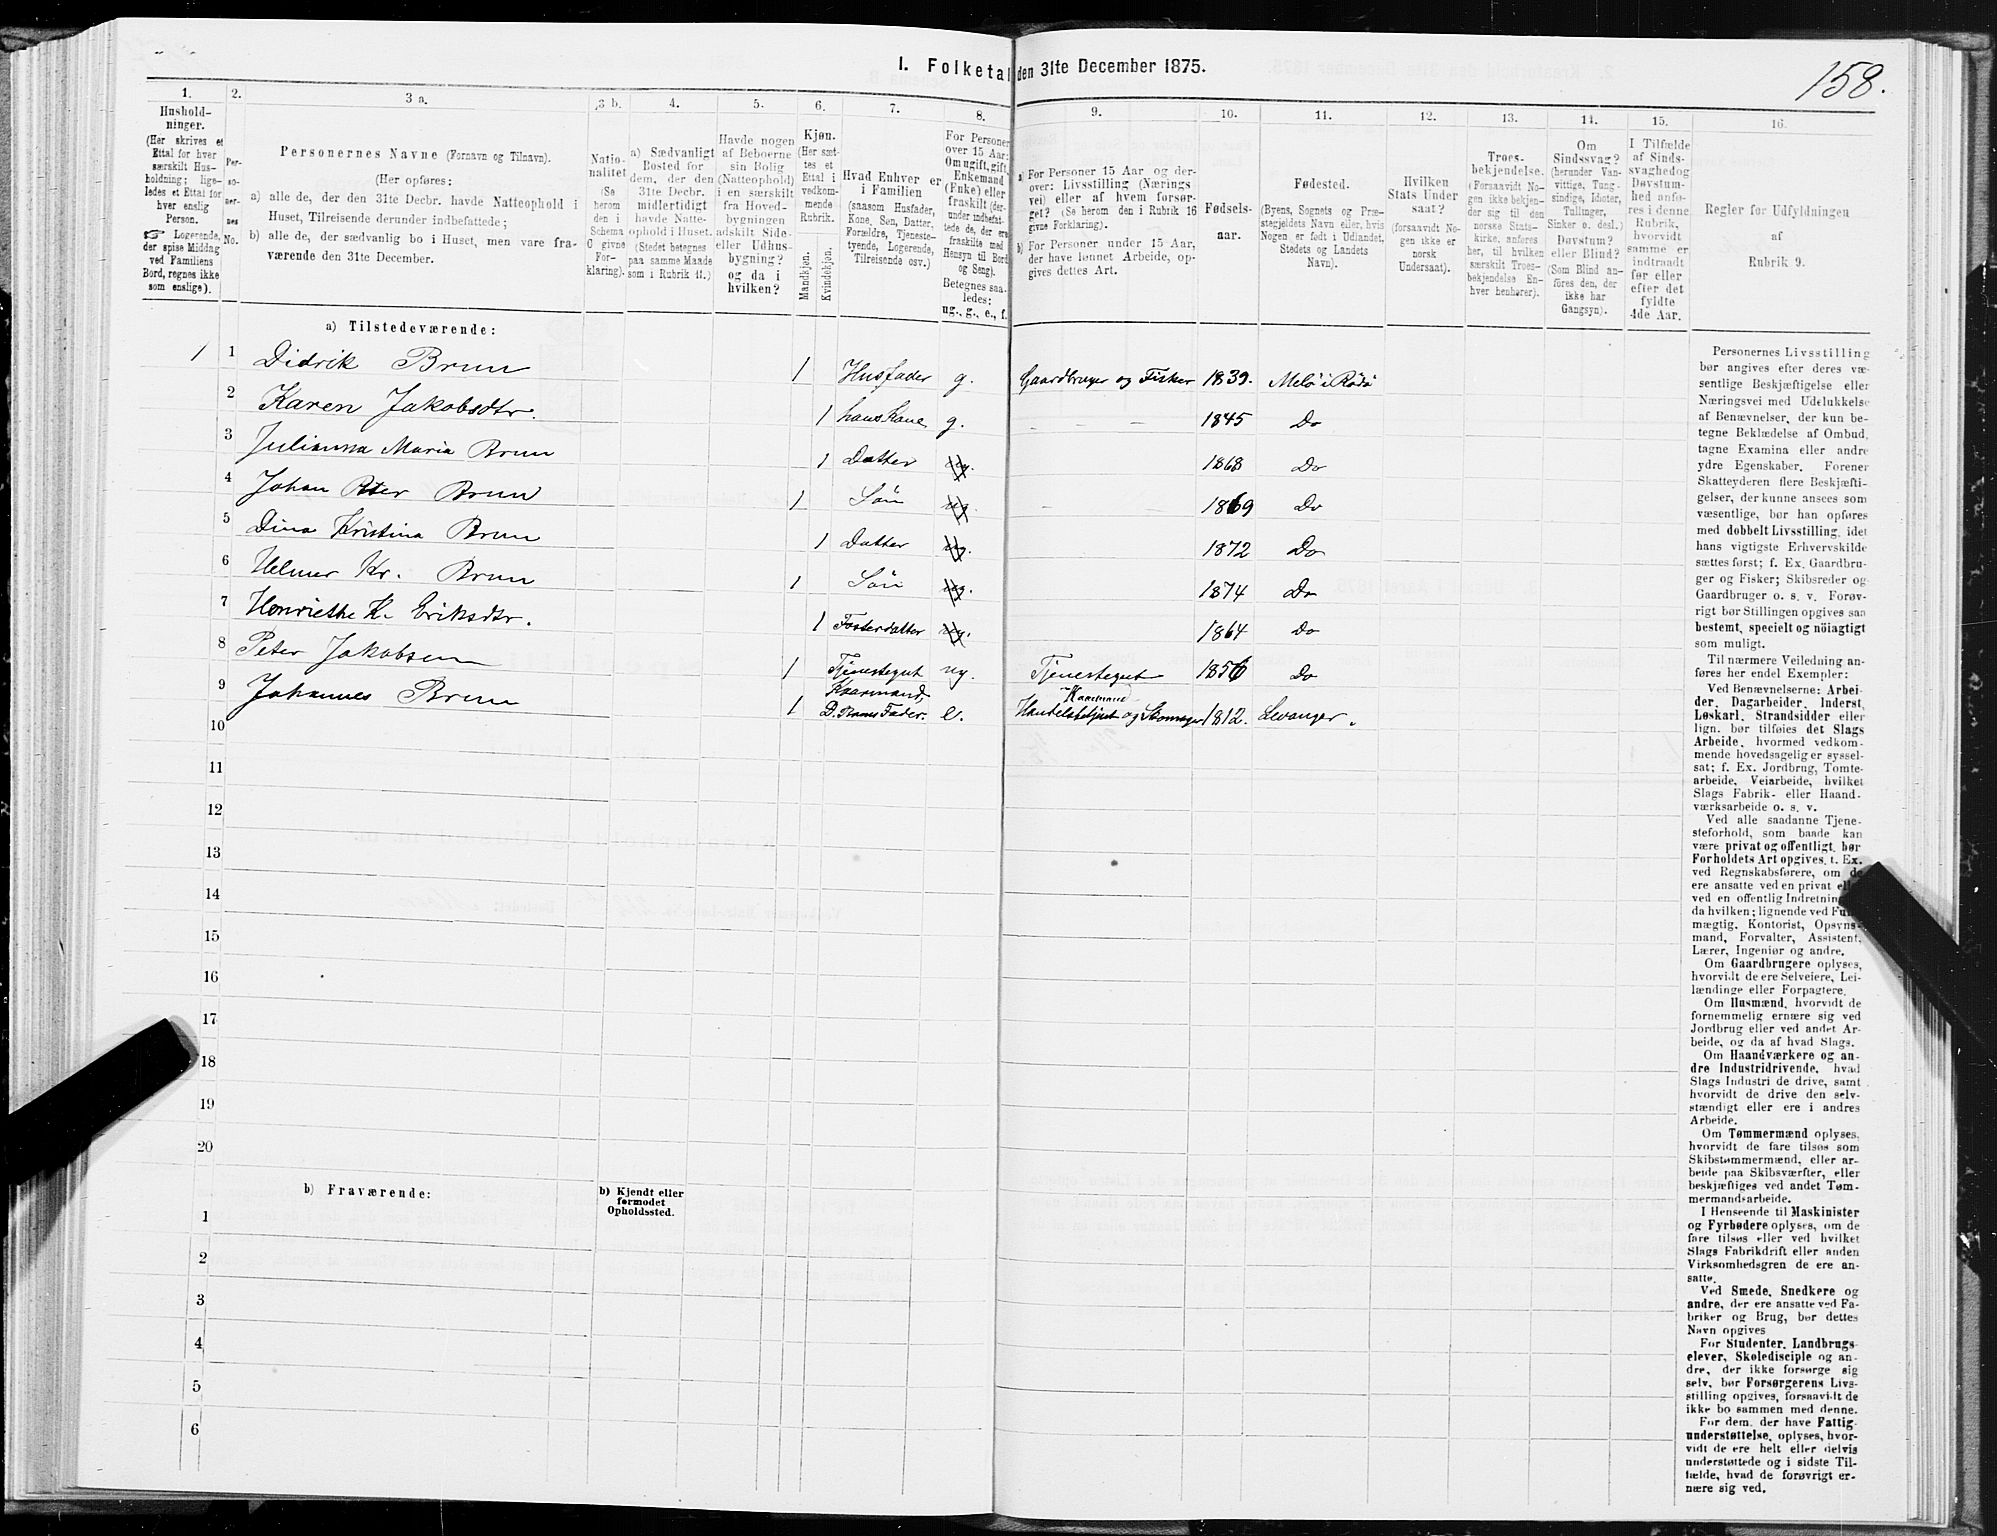 158.
I. Folketal den 31te December 1875.
1.
Hushold-
ninger.
(Her skrives et
Ettal for hver
særskilt Hus-
holdning; lige-
ledes et Ettal for
hver enslig
Person.
☞ Logerende,
der spise Middag
ved Familiens
Bord, regnes ikke
som enslige).
2.
Per-
so-
ner-
nes
No.
3 a.
Personernes Navne (Fornavn og Tilnavn).
(Her opføres:
a) alle de, der den 31te Decbr. havde Natteophold i
Huset, Tilreisende derunder indbefattede;
b) alle de, der sædvanlig bo i Huset, men vare fra-
værende den 31te December.
3 b.
Natio-
nalitet
(Se
herom
den i
Schema
C givne
For-
klaring).
4.
a) Sædvanligt
Bosted for
dem, der den
31te Decbr.
midlertidigt
havde Natte-
ophold i Huset.
(Stedet betegnes
paa samme Maade
som i Rubrik 11.)
5.
Havde nogen
af Beboerne
sin Bolig
(Natteophold)
i en særskilt
fra Hoved-
bygningen
adskilt Side-
eller Udhus-
bygning?
og da i
hvilken?
6.
Kjøn.
(Her sæt-
tes et
Ettal i
vedkom-
mende
Rubrik.
Mandkjøn.
Kvindekjøn.
7.
Hvad Enhver er
i Familien
(saasom Husfader,
Kone, Søn, Datter,
Forældre, Tjeneste-
tyende, Logerende,
Tilreisende osv.)
8.
For Personer
over 15 Aar:
Om ugift, gift,
Enkemand
(Enke) eller
fraskilt (der-
under indbefat-
tede de, der ere
fraskilte med
Hensyn til Bord
og Seng).
Betegnes saa-
ledes:
ug., g., e., f.
9.
a) For Personer 15 Aar og der-
over: Livsstilling (Nærings
vei) eller af hvem forsør-
get? (Se herom den i Rubrik 16
givne Forklaring).
b) For Personer under 15 Aar,
der have lønnet Arbeide, op-
gives dettes Art.
10.
Fødsels-
aar.
11.
Fødested.
(Byens, Sognets og Præ-
stegjeldets Navn eller, hvis
Nogen er født i Udlandet,
Stedets og Landets
Navn).
12.
Hvilken
Stats Under
saat?
(forsaavidt No-
gen ikke er
norsk
Undersaat).
13.
Troes-
bekjendelse.
(Forsaavidt No-
gen ikke bekjen-
der sig til den
norske Stats-
kirke, anføres
her, til hvilken
særskilt Troes-
bekjendelse En-
hver henhører).
14.
Om
Sindssvag?
(herunder Van-
vittige, Tung-
sindige, Idioter,
Tullinger,
Sinker o. desl.)
Døvstum?
eller Blind?
(Som Blind an-
føres den, der
ikke har
Gangsyn).
15.
I Tilfælde
af Sinds-
svaghed og
Døvstum-
hed anfø-
res i denne
Rubrik,
hvorvidt
samme er
indtraadt
før eller
efter det
fyldte
4de Aar.
16.
Regler for Udfyldningen
af
Rubrik 9.
a) Tilstedeværende:
1 1 Didrik Brun 1 Husfader g. Gaardbruger og Fisker 1839. Melö i Rödö
2 Karen Jakobsdtr. 1 hans Kone g. – – – 1845 Do
3 Julianna Maria Brun 1 Datter ug. 1868 Do
4 Johan Peter Brun 1 Søn ug. 1869 Do
5 Dina Kristina Brun 1 Datter ug. 1872 Do
6 Helmer Kr. Brun 1 Søn ug. 1874 Do
7 Henriethe K. Eriksdtr. 1 Fosterdatter ug. 1864 Do
8 Peter Jakobsen 1 Tjenestegut ug. Tjenestegut 1856 Do
9 Johannes Brun 1 Kaarmand, D. Bruns Fader. e. Kaarmand og Skomager 1812. Levanger.
10
11
12
13
14
15
16
17
18
19
20
b) Fraværende:
b) Kjendt eller
formodet
Opholdssted.
1
2
3
4
5
6
Personernes Livsstilling
bør angives efter deres væ-
sentlige Beskjæftigelse eller
Næringsvei med Udelukkelse
af Benævnelser, der kun be-
tegne Beklædelse af Ombud,
tagne Examina eller andre
ydre Egenskaber. Forener
Skatteyderen flere Beskjæfti-
gelser, der kunne ansees som
væsentlige, bør han opføres
med dobbelt Livsstilling, idet
hans vigtigste Erhvervskilde
sættes først; f. Ex. Gaardbru-
ger og Fisker; Skibsreder og
Gaardbruger o. s. v. Forøv-
rigt bør Stillingen opgives saa
bestemt, specielt og nöiagtigt
som muligt.
Til nærmere Veiledning an-
føres her endel Exempler:
Ved Benævnelserne: Arbei-
der, Dagarbeider, Inderst,
Løskarl, Strandsidder eller
lign. bør tilføies det Slags
Arbeide, hvormed vedkom-
mende hovedsagelig er syssel-
sat; f. Ex. Jordbrug, Tomte-
arbeide, Veiarbeide, hvilket
Slags Fabrik- eller Haand-
værksarbeide o. s. v.
Ved alle saadanne Tjene-
steforhold, som baade kan
være privat og offentligt, bør
Forholdets Art opgives, t. Ex.
ved Regnskabsførere, om de
ere ansatte ved en privat eller
ved en offentlig Indretning og
da hvilken; lignende ved Fuld-
mægtig, Kontorist, Opsyns-
mand, Forvalter, Assistent,
Lærer, Ingeniør og andre.
Om Gaardbrugere oplyses,
hvorvidt de ere Selveiere, Lei-
lændinge eller Forpagtere.
Om Husmænd, hvorvidt de
fornemmelig ernære sig ved
Jordbrug eller ved andet Ar-
beide, og da af hvad Slags.
Om Haandværkere og an-
dre Industridrivende, hvad
Slags Industri de drive, samt
hvorvidt de drive den selv-
stændigt eller ere i andres
Arbeide.
Om Tømmermænd oplyses,
hvorvidt de fare tilsøs som
Skibstømmermænd, eller ar-
beide paa Skibsværfter, eller
beskjæftiges ved andet Tøm-
mermandsarbeide.
I Henseende til Maskinister
og Fyrbødere oplyses, om de
fare tilsøs eller ved hvilket
Slags Fabrikdrift eller anden
Virksomhedsgren de ere an-
satte.
Ved Smede, Snedkere og
andre, der ere ansatte ved Fa-
briker og Brug, bør dettes
Navn opgives
For Studenter, Landbrugs-
elever, Skoledisciple og an-
dre, der ikke forsørge sig
selv, bør Forsørgerens Livs-
stilling opgives, forsaavidt de
ikke bo sammen med denne.
For dem, der have Fattig-
understøttelse, oplyses, hvor-
vidt de ere helt eller delvis
understøttede og i sidste Til-
fælde, hvad de forøvrigt er-
nære sig ved.